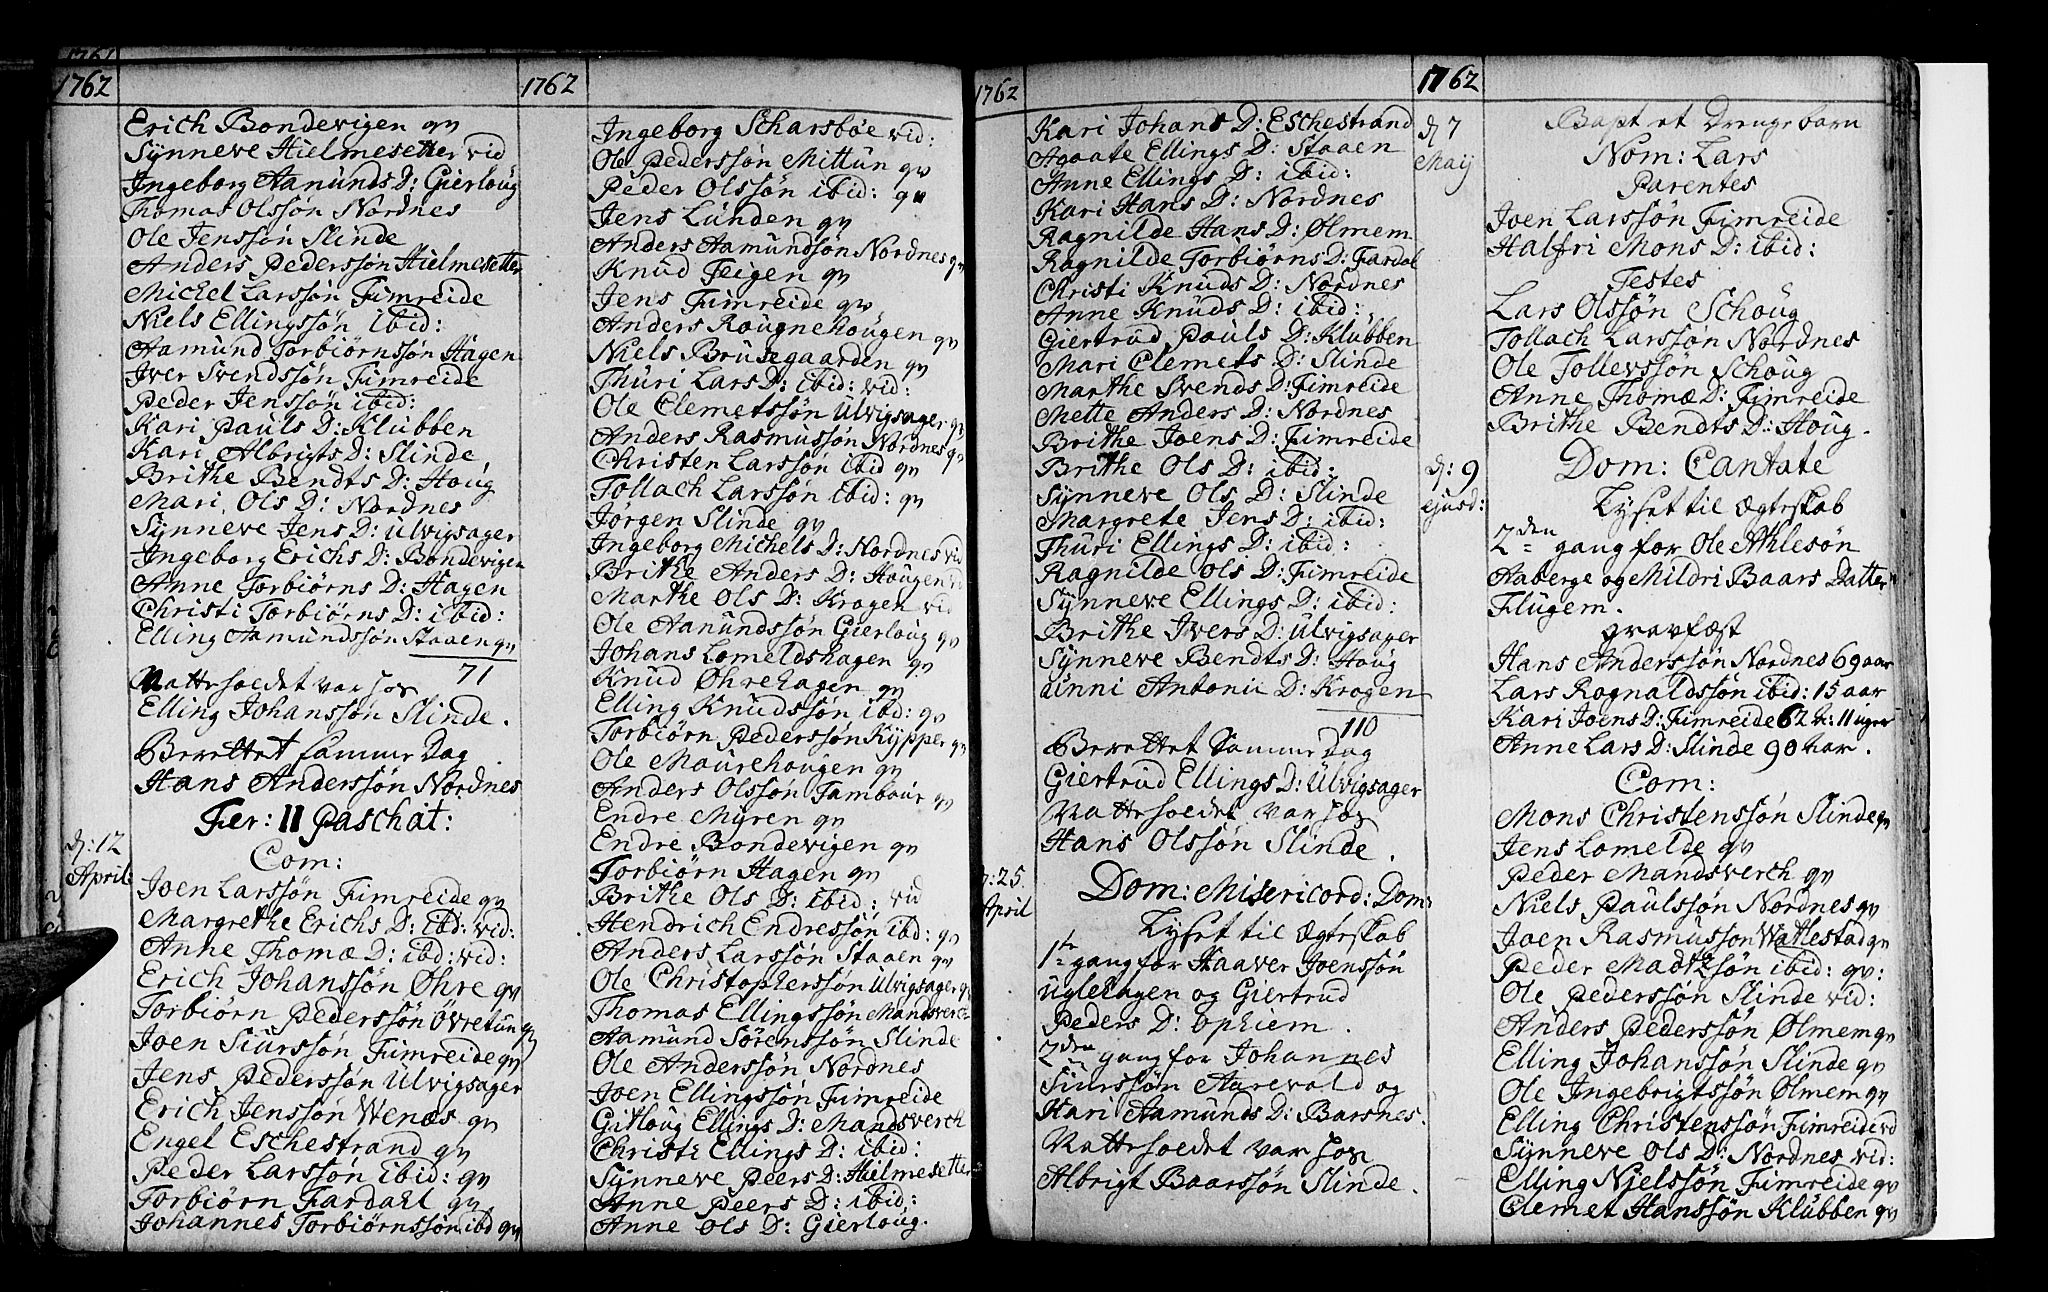 1761
1762
Erich Bondevigen qv
Synneve Hielmesetter vid
Ingeborg Aamunds D: Gierloug
Thomas Olssøn Nordnes
Ole Jenssøn Slinde
Anders Pederssøn Hielmesetter
Michel Larssøn Fimreide
Niels Ellingssøn ibid:
Aamund Torbiørnssøn Hagen
Iver Svendssøn Fimreide
Peder Jenssøn ibid:
Kari Pauls D: Klubben
Kari Albrigts D: Slinde
Brithe Bendts D: Houg
Mari Ols D: Nordnes
Synneve Jens D: Ulvigsager
Ingeborg Erichs D: Bondevigen
Anne Torbiørns D: Hagen
Christi Torbiørns D: ibid:
Elling Aamundssøn Staaen qv
71
Natterhoedet var hos
Elling Johanssøn Slinde.
Berettet samme Dag
Hans Anderssøn Nordnes
Fer: II Paschat:
d: 12
April:
Com:
Joen Larssøn Fimreide qv
Margrethe Erichs D: ibd: vid:
Anne Thomæ D: ibd: vid:
Erich Johanssøn Øhre qv
Torbiørn Pederssøn Øvretun qv
Joen Siurssøn Fimreide qv
Jens Pederssøn Ulvigsager
Erich Jenssøn Wenæs qv
Engel Eschestrand qv
Peder Larssøn ibid: qv
Torbiørn Fardahl qv
Johannes Torbiørnssøn ibd qv
1762
Ingeborg Scharsbøe vid:
Ole Pederssøn Mittun qv
Peder Olssøn ibid: qv
Jens Lunden qv
Anders Aamundssøn Nordnes qv
Knud Feigen qv
Jens Fimreide qv
Anders Rougnehougen qv
Niels Brusegaarden qv
Thuri Lars D: ibid: vid:
Ole Clemetssøn Ulvigsager qv
Anders Rasmussøn Nordnes qv
Christen Larssøn ibid qv
Tollach Larssøn ibid: qv
Jørgen Slinde qv
Ingeborg Michels D: Nordnes vid
Brithe Anders D: Hougen vid
Marthe Ols D: Krogen vid
Ole Aamundssøn Gierloug qv
Johans Lomeldshagen qv
Knud Øhrehagen qv
Elling Knudssøn ibd: qv
Torbiørn Pederssøn Kypper qv
Ole Maurehougen qv
Anders Olssøn Tambour qv
Endre Myren qv
Endre Bondevigen qv
Torbiørn Hagen qv
Brithe Ols D: ibid: vid
Hendrich Endressøn ibd: qv
Anders Larssøn Staaen qv
Ole Christopherssøn Ulvigsager qv
Thomas Ellingssøn Mandsverch
Aamund Sørenssøn Slinde
Ole Anderssøn Nordnes
Joen Ellingssøn Fimreide
Gitloug Ellings D: Mandsverch
Christi Ellings D: ibid:
Synneve Peers D: Hielmesetter
Anne Peers D: ibid:
Anne Ols D: Gierloug.
1762
Kari Johans D: Eschestrand
Agaate Ellings D: Staaen
Anne Ellings D: ibid:
Kari Hans D: Nordnes
Ragnilde Hans D: Ølmem
Ragnilde Torbiørns D: Fardal
Christi Knuds D: Nordnes
Anne Knuds D: ibid:
Giertrud Pauls D: Klubben
Mari Clemets D: Slinde
Marthe Svends D: Fimreide
Mette Anders D: Nordnes
Brithe Joens D: Fimreide
Brithe Ols D: ibid:
Synneve Ols D: Slinde
Margrete Jens D: ibid:
Thuri Ellings D: ibid:
Ragnilde Ols D: Fimreide
Synneve Ellings D: ibid:
Brithe Ivers D: Ulvigsager
Synneve Bendts D: Houg
Unni Antonii D: Krogen
110
Berettet samme Dag
Giertrud Ellings D: Ulvigsager
Natterhoedet var hos
Hans Olssøn Slinde.
d: 25.
April
Dom: Misericord: Dom:
Lyset til Ægterskab
1te gang for Haaver Joenssøn
Uglehagen og Giertrud
Peders D: Ophiem.
2den gang for Johannes
Siurssøn Aarevold og
Kari Aamunds D: Barsnes.
Natterhoedet var hos
Albrigt Baarssøn Slinde.
1762
d 7
Maij
Bapt et Drengebarn
Nom: Lars
Parentes
Joen Larssøn Fimreide
Halfri Mons D: ibid:
Testes
Lars Olssøn Schoug
Tollach Larssøn Nordnes
Ole Tollevssøn Schoug
Anne Thomæ D: Fimreide
Brithe Bendts D: Houg.
d: 9
ejusd:
Dom: Cantate
Lyset til Ægterskab
2den gang for Ole Athlesøn
Aaberge og Mildri Baars Datter
Flugem.
gravfæst
Hans Anderssøn Nordnes 69 aar
Lars Rognaldssøn ibid: 15 aar
Kari Joens D: Fimreide 62 a: 11 uger
Anne Lars D: Slinde 90 aar.
Com:
Mons Christenssøn Slinde qv
Jens Lomelde qv
Peder Mandsverch qv
Niels Paulssøn Nordnes qv
Joen Rasmusson Wattestad qv
Peder Madtzsøn ibid: qv:
Ole Pederssøn Slinde vid:
Anders Pederssøn Ølmem qv
Elling Johanssøn Slinde qv
Ole Ingebrigtssøn Ølmem qv
Elling Christenssøn Fimreide vd
Synneve Ols D: Nordnes vid:
Elling Njelssøn Fimreide qv
Clemet Hanssøn Klubben qv